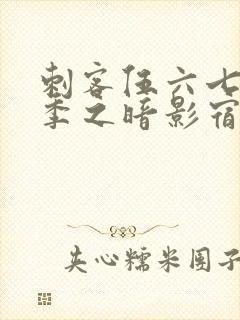 刺客伍六七
季之暗影宿
夹心糯米团子